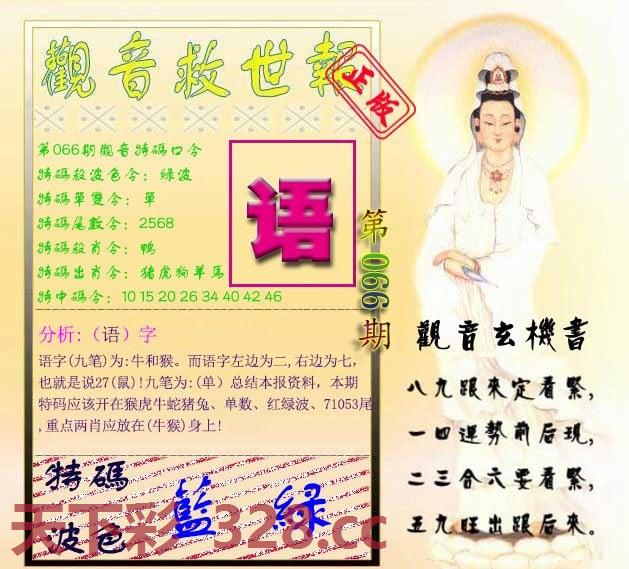 觀音救世報
正版
第066期觀音特碼口令
特碼殺波色令：綠波
特碼單雙令：單
特碼尾數令：2568
特碼殺肖令：鴨
特碼出肖令：猪虎狗羊馬
特中碼令：10 15 20 26 34 40 42 46
语
第066期
分析:（语）字
语字(九笔)为:牛和猴。而语字左边为二,右边为七,
也就是说27(鼠)!九笔为:(单）总结本报资料，本期
特码应该开在猴虎牛蛇猪兔、单数、红绿波、71053尾
,重点两肖应放在(牛猴)身上!
特碼
波色
藍 綠
天下彩 328.cc
觀音玄機書
八九跟來定看緊,
一四運勢前后現,
二三合六要看緊,
五九旺出跟后來。